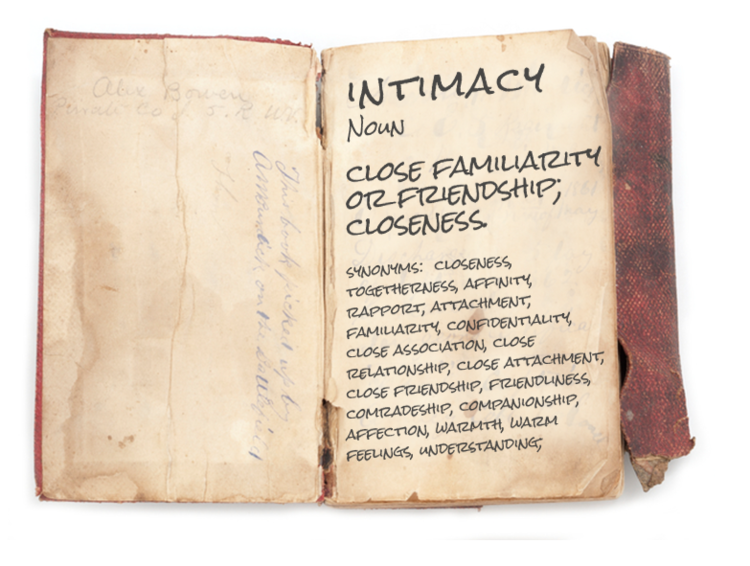 Alex Bowen
This book picked up by
INTIMACY
NOUN
CLOSE FAMILIARITY
OR FRIENDSHIP;
CLOSENESS.
SYNONYMS: CLOSENESS,
TOGETHERNESS, AFFINITY,
RAPPORT, ATTACHMENT,
FAMILIARITY, CONFIDENTIALITY,
CLOSE ASSOCIATION, CLOSE
RELATIONSHIP, CLOSE ATTACHMENT,
CLOSE FRIENDSHIP, FRIENDLINESS,
COMRADESHIP, COMPANIONSHIP,
AFFECTION, WARMTH, WARM
FEELINGS, UNDERSTANDING;